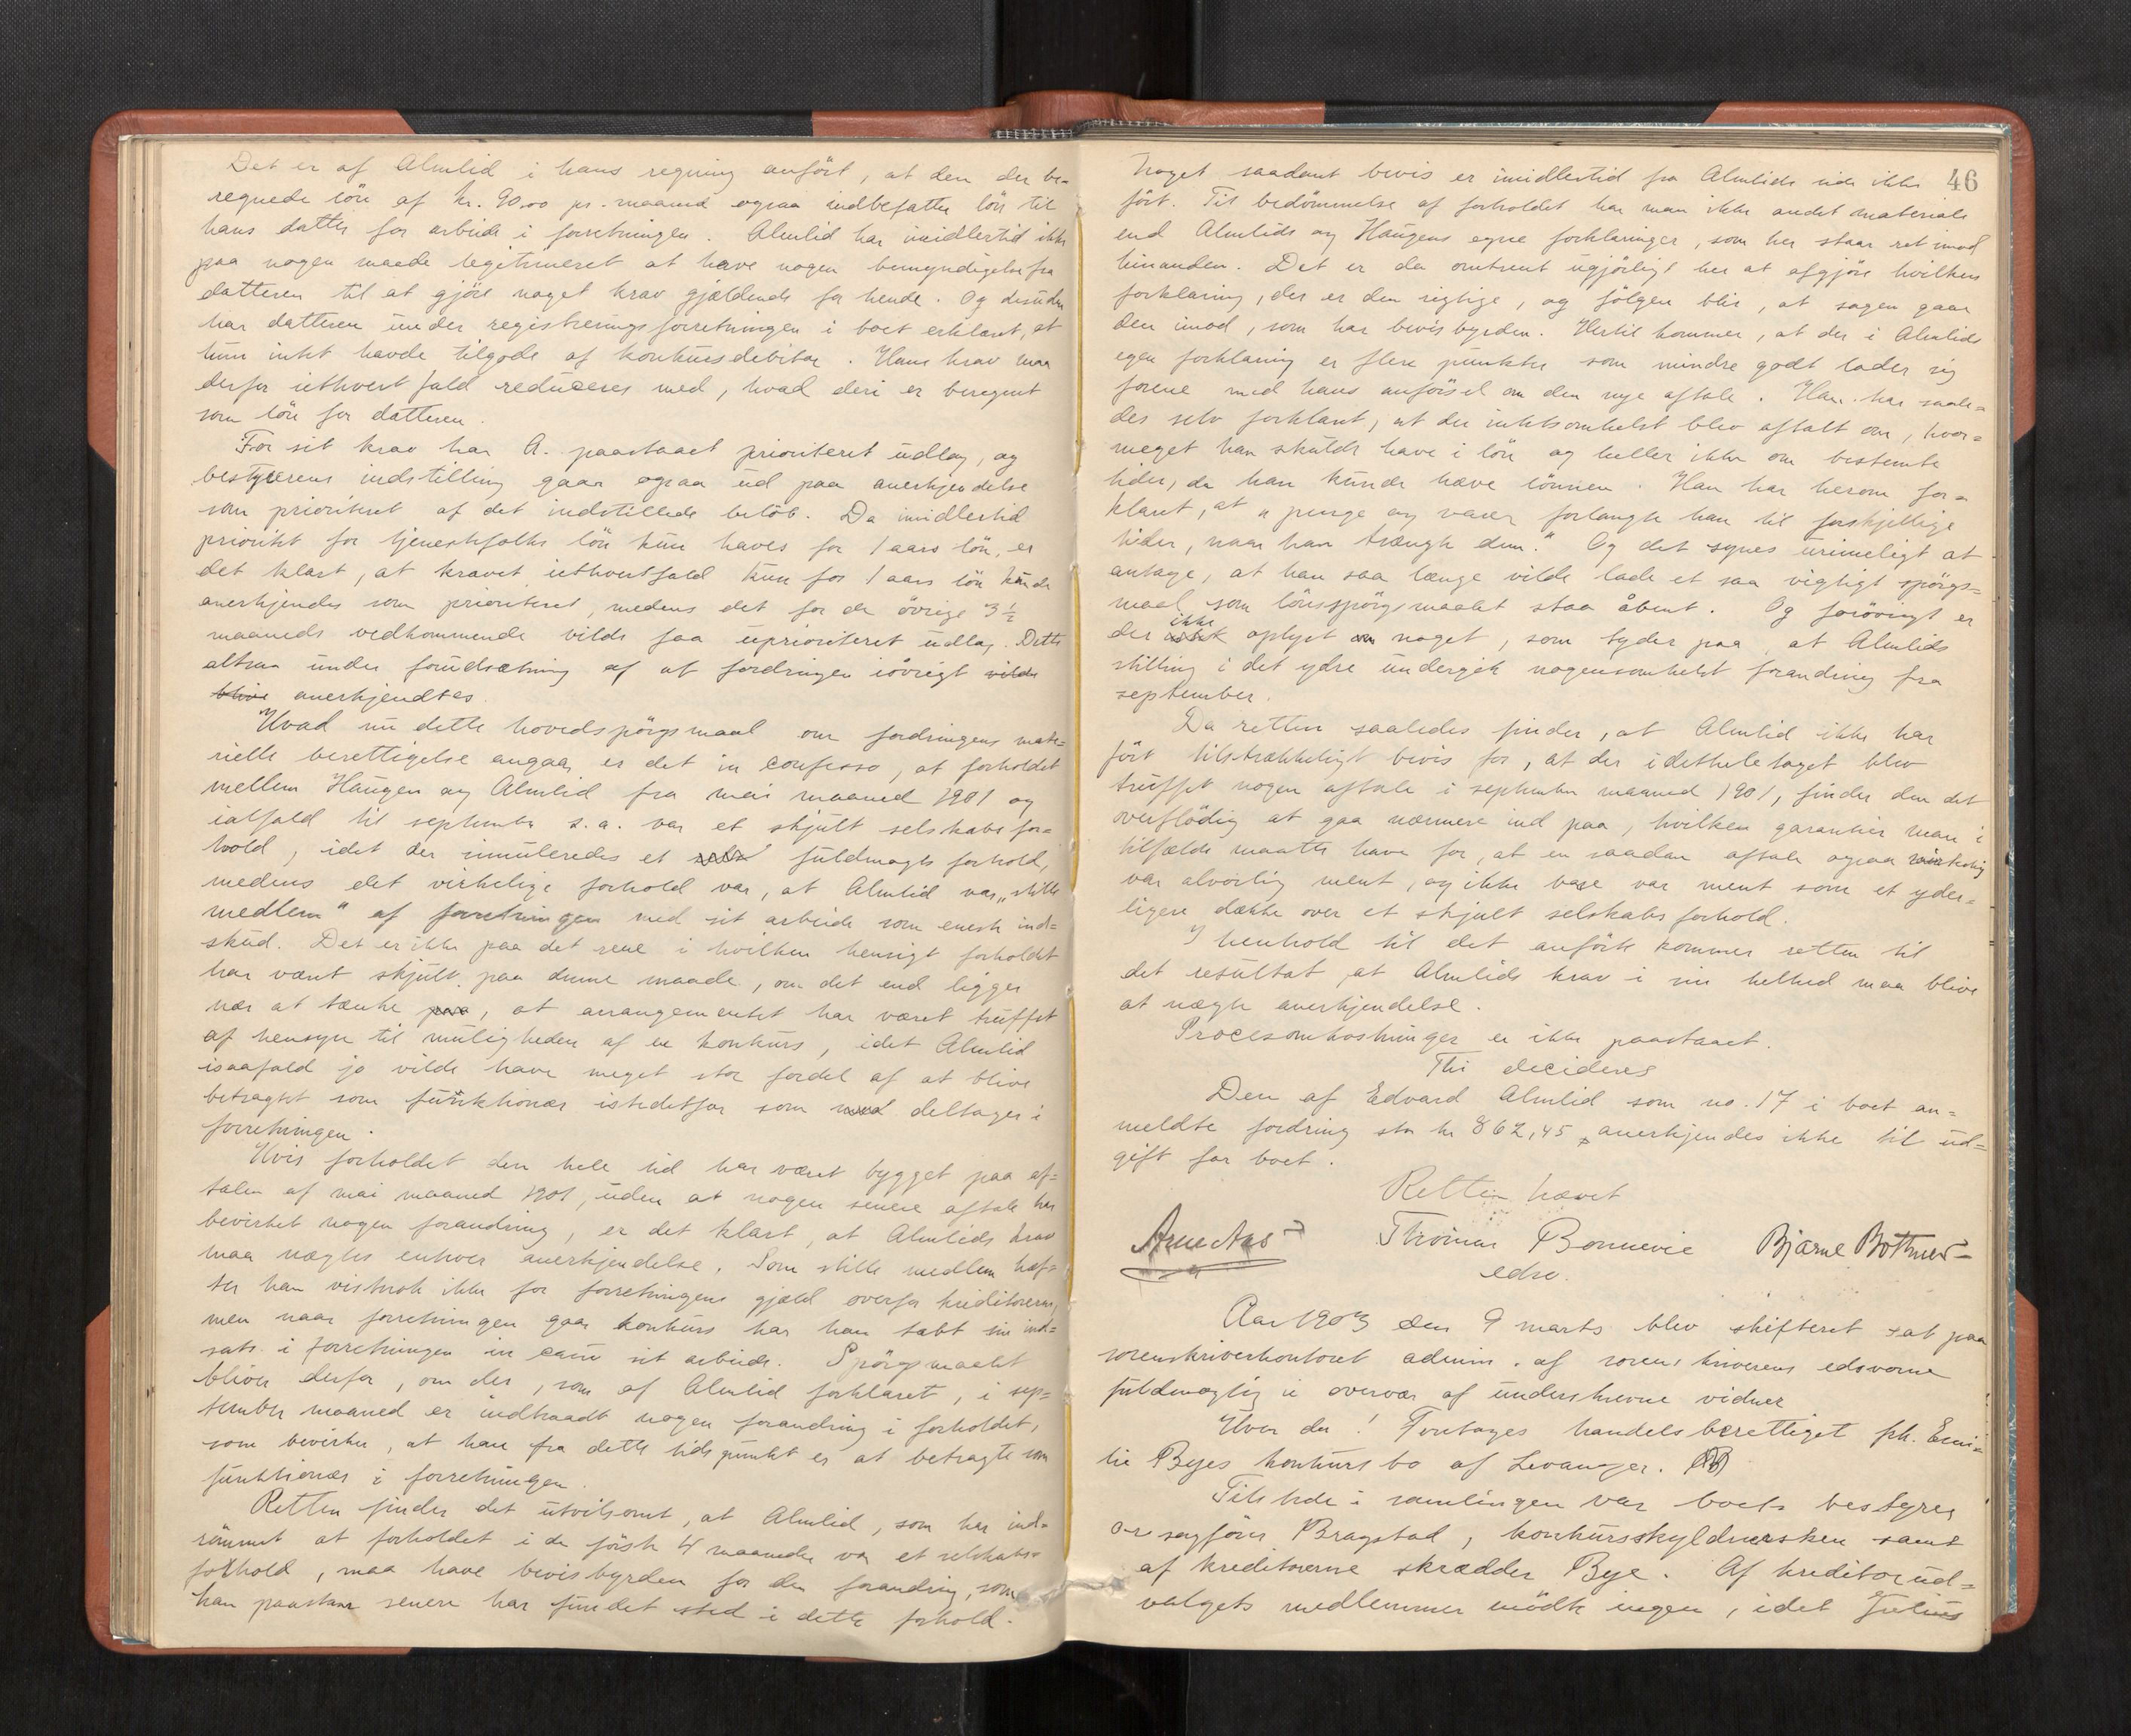 Det er af Almlid i hans regning anført, at den der be-
regnede løn af kr. 90,00 pr. maaned ogsaa indbefatter løn til
hans datter for arbeide i forretningen. Almlid har imidlertid ikke
paa nogen maade legitimeret at have nogen bemyndigelse fra
datteren til at gjøre noget krav gjældende for hende. Og desuden
har datteren under registreringsforretningen i boet erklæret, at
hun intet havde tilgode af konkursdebitor. Hans krav maa
derfor iethvert fald reduceres med, hvad deri er beregnet
som løn for datteren.
For sit krav har A. paastaaet prioriteret udlæg, og
bestyrerens indstilling gaar ogsaa ud paa anerkjendelse
som prioriteret af det indstillede beløb. Da imidlertid
prioritet for tjenestefolks løn kun haves for 1 aars løn, er
det klart, at kravet iethvertfald kun for 1 aars løn kunde
anerkjendes som prioriteret, medens det for de øvrige 3 ½
maaneds vedkommende vilde faa uprioriteret udlæg. Dette
altsaa under forudsætning af at fordringen iøvrigt vilde
blive anerkjendtes.
Hvad nu dette hovedspørgsmaal om fordringens mate=
rielle berettigelse angaar er det in confesso, at forholdet
mellem Haugen og Almlid fra mai maaned 1901 og
ialfald til septembr s.a. var et skjult selskabsfor=
hold, idet der simuleredes et fuldmagts forhold,
medens det virkelige forhold var, at Almlid var "stille
medlem" af forretningen med sit arbeide som eneste ind=
skud. Det er ikke paa det rene i hvilken hensigt forholdet
har været skjult paa denne maade, om det end ligger
nær at tænke paa, at arrangementet har været truffet
af hensyn til muligheden af en konkurs, idet Almlid
isaafald jo vilde have meget stor fordel af at blive
betragtet som funktionær istedetfor som med deltager i
forretningen.
Hvis forholdet den hele tid har været bygget paa af=
talen af mai maaned 1901, uden at nogen senere aftale har
bevirket nogen forandring, er det klart, at Almlids krav
maa nægtes enhver anerkjendelse. Som stille medlem hæf=
ter han vistnok ikke for forretningens gjæld overfor kreditorerne,
men naar forretningen gaar konkurs har han tabt sin ind=
sats i forretningen in casu sit arbeide. Spørgsmaalet
bliver derfor, om der, som af Almlid forklaret, i sep=
tember maaned er indtraadt nogen forandring i forholdet,
som bevirker, at han fra dette tidspunkt er at betragte som
funktionær i forretningen.
Retten finder det utvilsomt, at Almlid, som har ind=
rømmet at forholdet i de første 4 maaneder var et selskabs=
forhold, maa have bevisbyrden for den forandring, som
han paastaar senere har fundet sted i dette forhold.
46
Noget saadant bevis er imidlertid fra Almlids side ikke
ført. Til bedømmelse af forholdet har man ikke andet materiale
end Almlids og Haugens egne forklaringer, som her staar ret imod
hinanden. Det er da omtrent ugjørligt her at afgjøre hvilken
forklaring, der er den rigtige, og følgen blir, at sagen gaar
den imod, som har bevisbyrden. Hertil kommer, at der i Almlids
egen forklaring er flere punkter som mindre godt lader sig
forene med hans anførsel om den nye aftale. Han har saale=
des selv forklaret, at der intetsomhelst blev aftalt om, hvor=
meget han skulde have i løn og heller ikke om bestemte
tider, da han kunde hæve lønnen. Han har herom for=
klaret, at "penge og varer forlangte han til forskjellige
tider, naar han trængte dem." Og det synes urimeligt at
antage, at han saa længe vilde lade et saa vigtigt spørgs=
maal som lønsspørgsmaalet staa åbent. Og forøvrigt er
der ikke oplyst om noget, som tyder paa, at Almlids
stilling i det ydre undergik nogensomhelst forandring fra
september.
Da retten saaledes finder, at Almlid ikke har
ført tilstrækkeligt bevis for, at der idetheletaget blev
truffet nogen aftale i septembr maaned 1901, finder den det
overflødig at gaa nærmere ind paa, hvilken garantier man i
tilfælde maatte have for, at en saadan aftale ogsaa virkelig
var alvorlig ment, og ikke bare var ment som et yder=
ligere dække over et skjult selskabs forhold.
I henhold til det anførte kommer retten til
det resultat, at Almlids krav i sin helhed maa blive
at nægte anerkjendelse.
Procesomkostninger er ikke paastaaet.
Thi decideres
Den af Edvard Almlid som no. 17 i boet an=
meldte fordring stor kr 862,45 anerkjendes ikke til ud=
gift for boet.
Retten hævet
Arne Aas Thomas Bonnevie Bjarne Bottner
edsv.
Aar 1903 den 9 marts blev skifteret sat paa
sorenskriverkontoret admin. af sorenskriverens edsvorne
fuldmægtig i overvær af underskrevne vidner
Hvor da! Foretoges handelsberettiget frk. Emi=
lie Byes konkursbo af Levanger.
Tilstede i samlingen var boets bestyrer
o-r sagfører Bragstad, konkursskyldnersken samt
af kreditorerne skrædder Bye. Af kreditorud=
valgets medlemmer mødte ingen, idet Julius